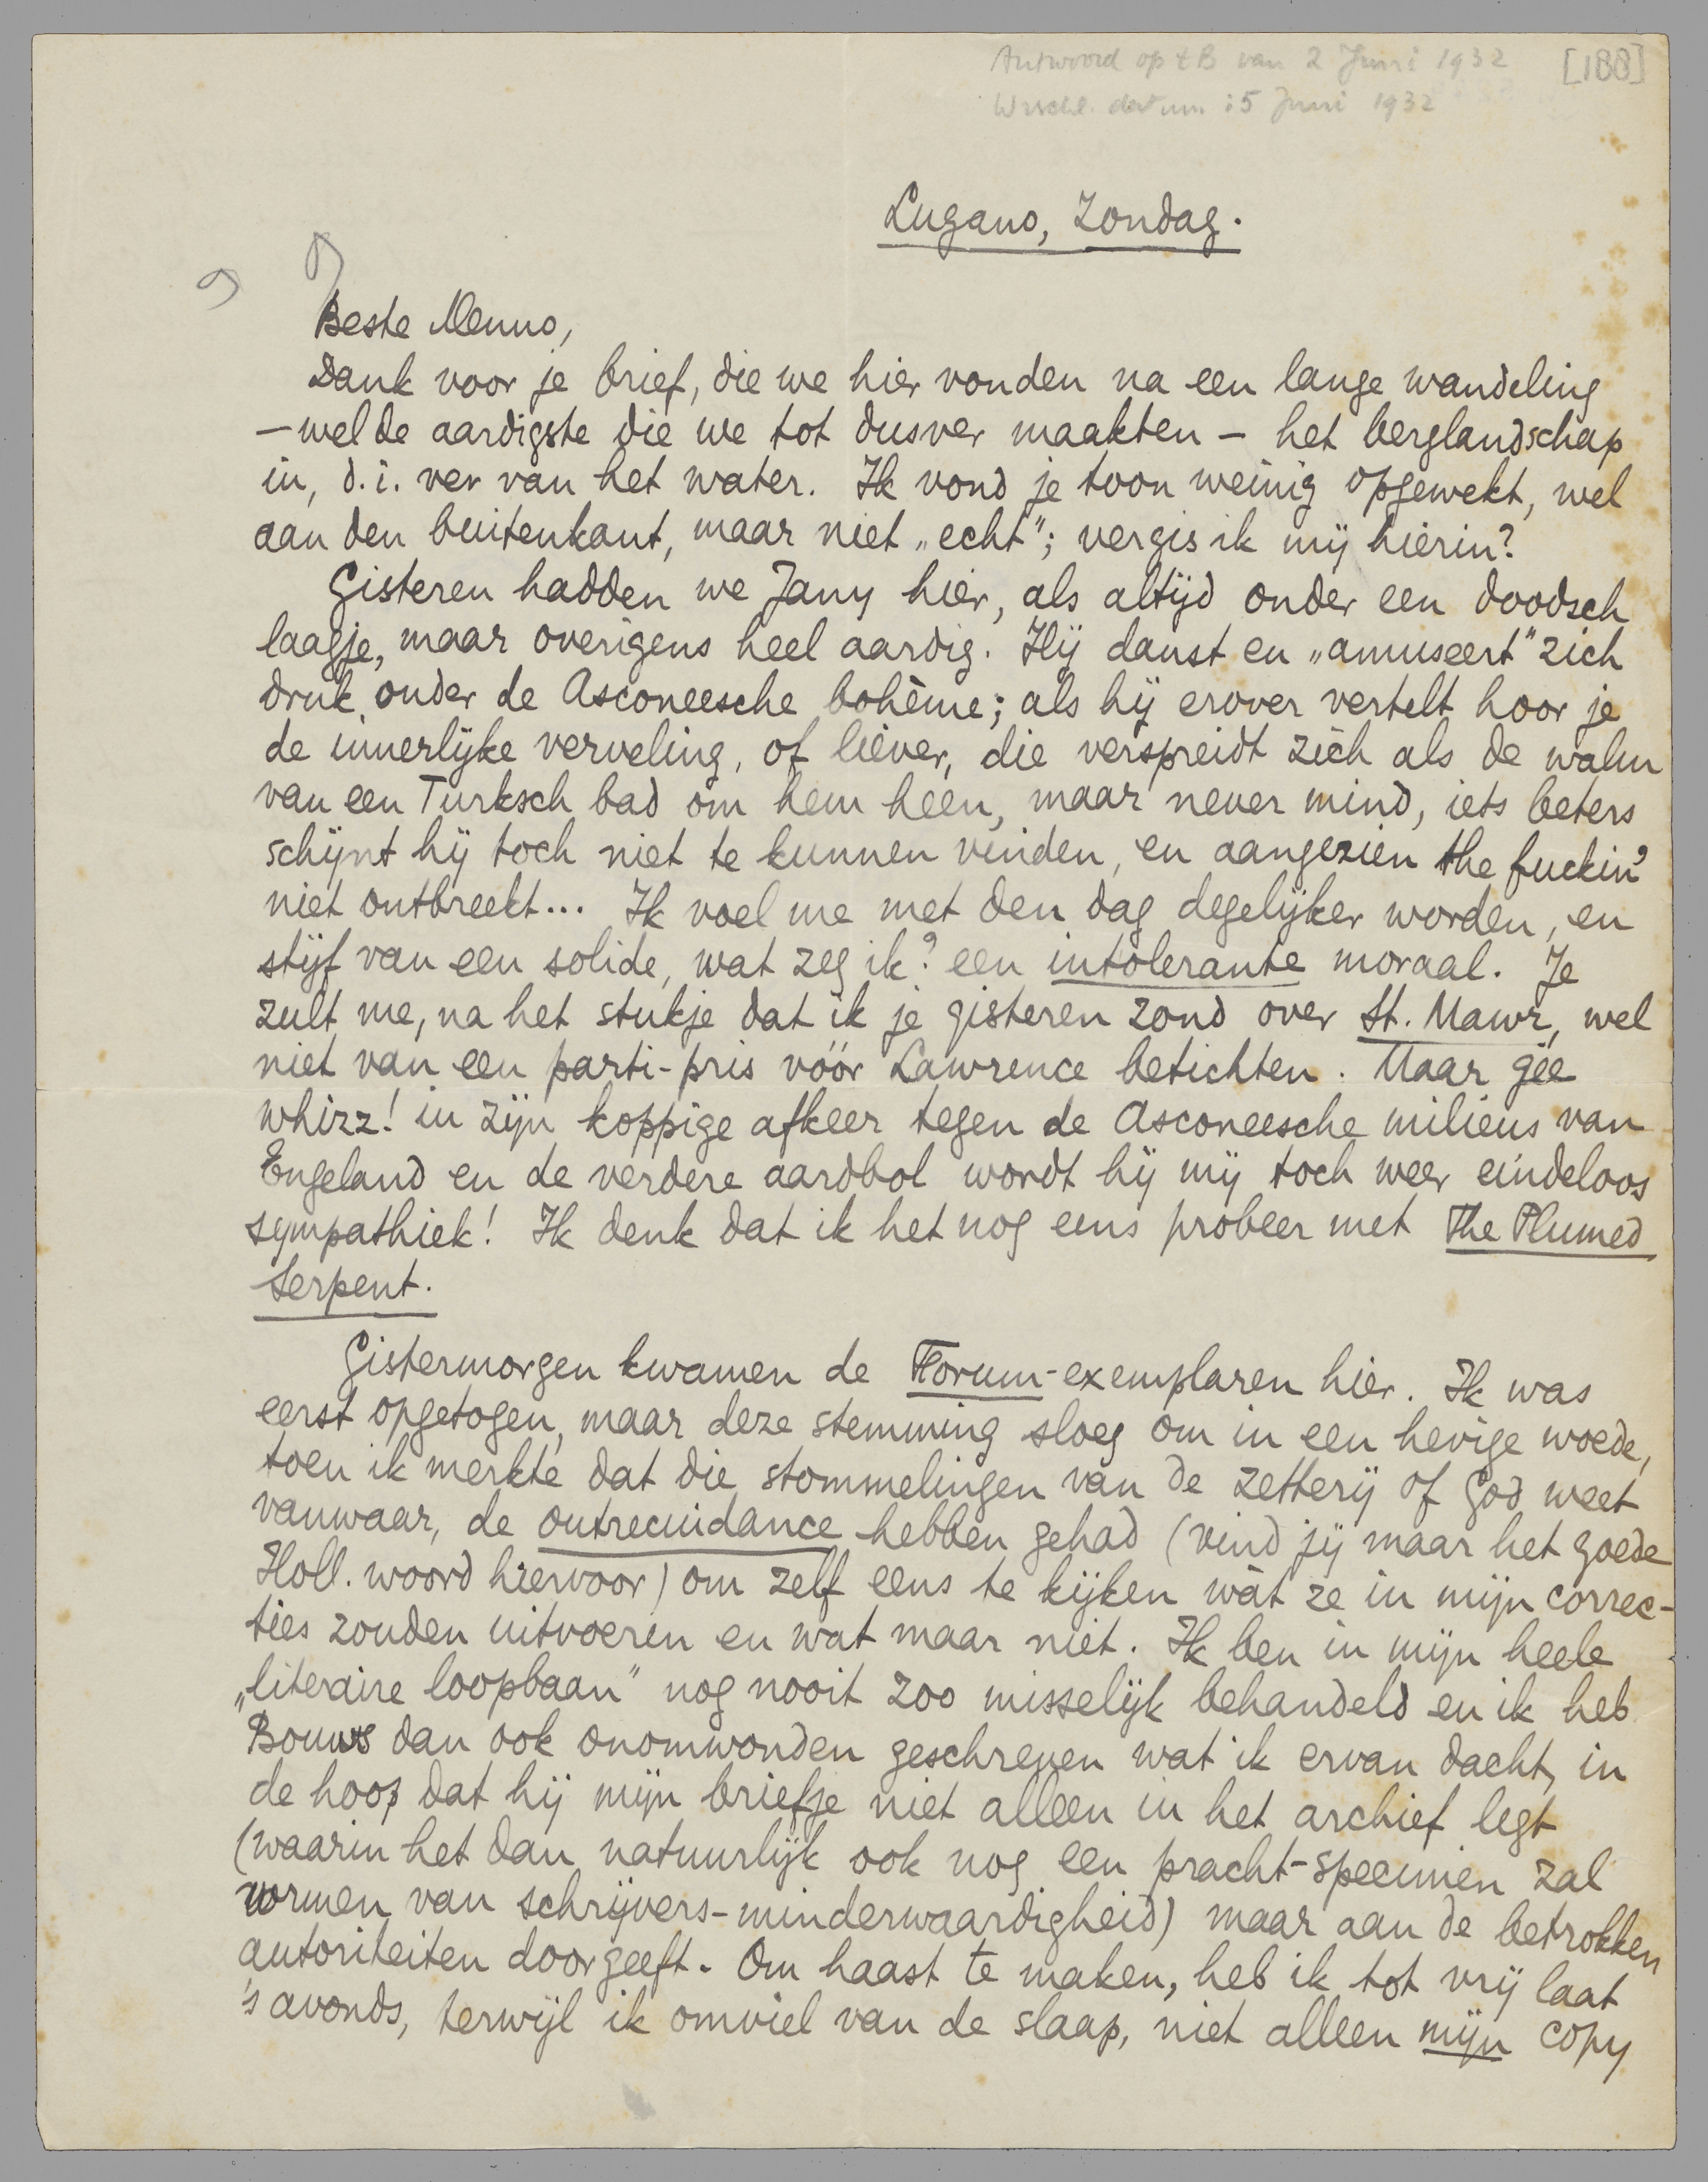 Antwoord op tB van 2 Juni 1932 [188]
Wrschl. datum: 5 Juni 1932
Lugano, Zondag.
Beste Menno,
Dank voor je brief, die we hier vonden na een lange wandeling
— wel de aardigste die we tot dusver maakten — het berglandschap
in, d.i. ver van het water. Ik vond je toon weinig opgewekt, wel
aan den buitenkant, maar niet „echt"; vergis ik mij hierin?
Gisteren hadden we Jany hier, als altijd onder een doodsch
laagje, maar overigens heel aardig. Hij danst en „amuseert" zich
druk onder de Asconeesche bohème; als hij erover vertelt hoor je
de innerlijke verveling, of liever, die verspreidt zich als de walm
van een Turksch bad om hem heen, maar never mind, iets beters
schijnt hij toch niet te kunnen vinden, en aangezien the fuckin'
niet ontbreekt... Ik voel me met den dag degelijker worden, en
stijf van een solide, wat zeg ik? een intolerante moraal. Je
zult me, na het stukje dat ik je gisteren zond over St. Mawr, wel
niet van een parti-pris vóór Lawrence betichten. Maar gee
whizz! in zijn koppige afkeer tegen de Asconeesche milieus van
Engeland en de verdere aardbol wordt hij mij toch weer eindeloos
sympathiek! Ik denk dat ik het nog eens probeer met The Plumed
Serpent.
Gistermorgen kwamen de Forum-exemplaren hier. Ik was
eerst opgetogen, maar deze stemming sloeg om in een hevige woede,
toen ik merkte dat die stommelingen van de zetterij of God weet
vanwaar, de outrecuidance hebben gehad (vind jij maar het goede
Holl. woord hiervoor) om zelf eens te kijken wàt ze in mijn correc-
ties zouden uitvoeren en wat maar niet. Ik ben in mijn heele
„literaire loopbaan" nog nooit zoo misselijk behandeld en ik heb
Bouws dan ook onomwonden geschreven wat ik ervan dacht, in
de hoop dat hij mijn briefje niet alleen in het archief legt
(waarin het dan natuurlijk ook nog een pracht-specimen zal
vormen van schrijvers-minderwaardigheid) maar aan de betrokken
autoriteiten doorgeeft. Om haast te maken, heb ik tot vrij laat
's avonds, terwijl ik omviel van de slaap, niet alleen mijn copy